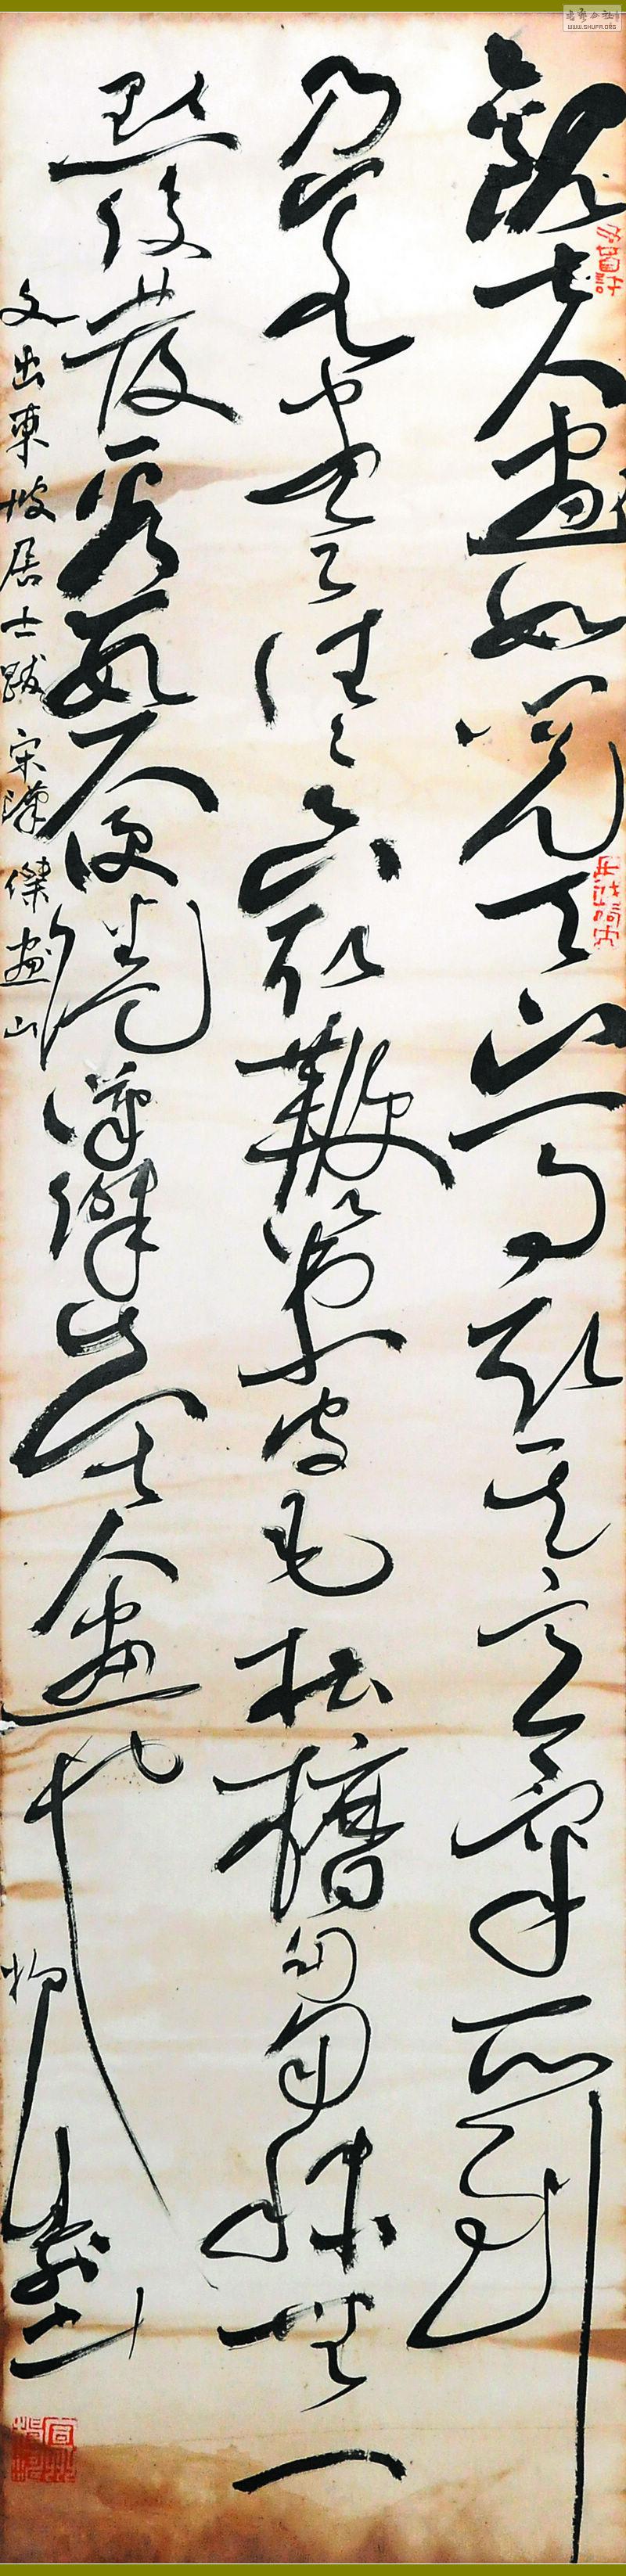 觀士人畫如閱天下馬取其意氣所到
乃若畫工往往只取鞭策皮毛槽櫪芻秣無一
點俊發看數尺便倦漢傑真士人畫也
文出東坡居士跋宋漢傑畫山
WWW.SHUFA.ORG